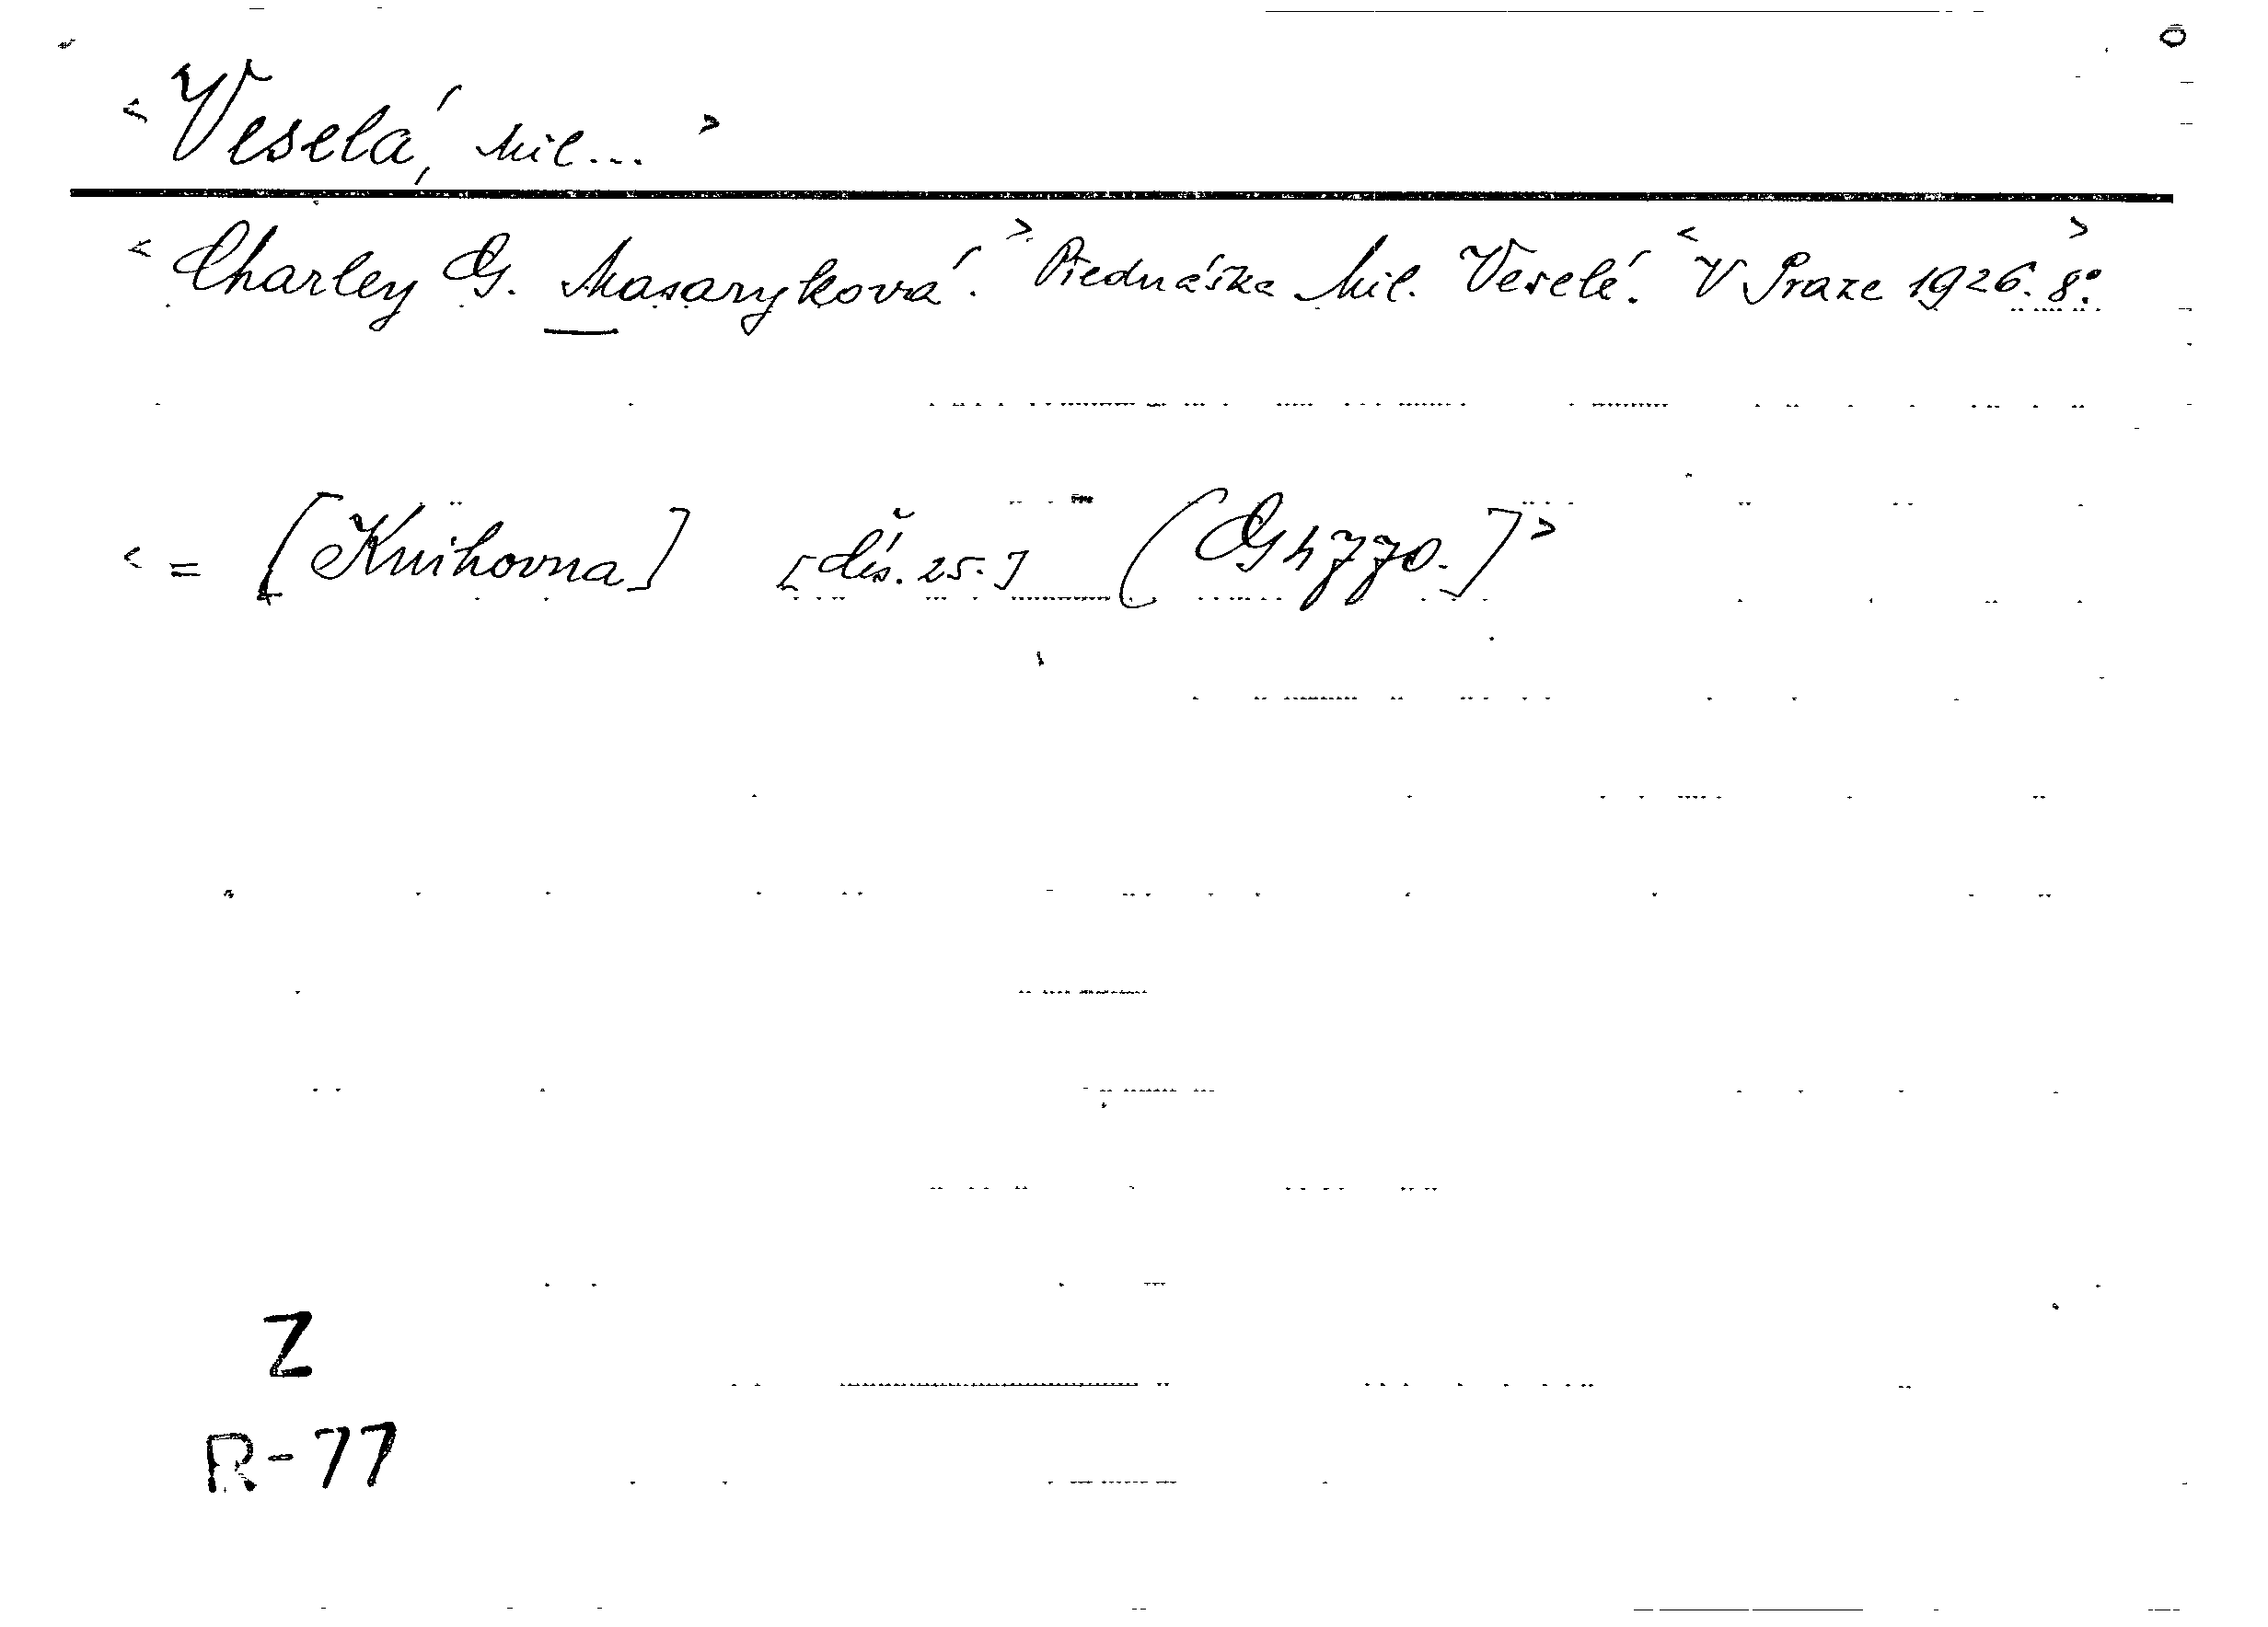 < Veselá, Mil... >
< Charley G. Masaryková. > Přednáška Mil. Veselé. < V Praze 1926. 8°. >
< = [Knihovna] [čís. 25.] (G 4770.] >
Z
R-77